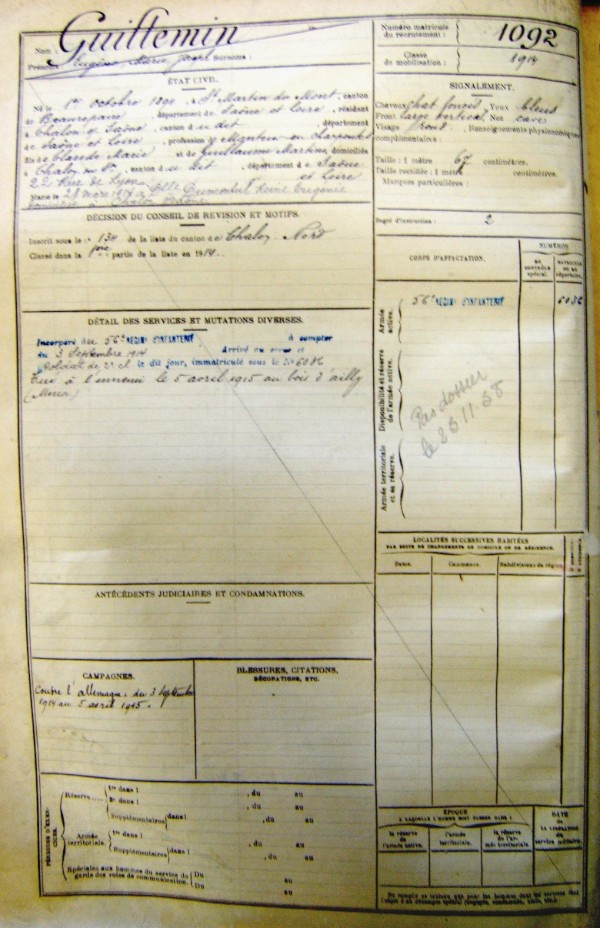 Guillemin
Nom :
Prénoms : Eugène Marie Joseph Surnoms :
Numéro matricule
du recrutement :
1092
Classe
de mobilisation :
1914
ÉTAT CIVIL.
Né le 1er octobre 1894 à St Martin du Mont, canton
de Beaurepaire, département de Saône et Loire, résidant
à Chalon s/ Saône, canton d u dit, département
de Saône et Loire, profession d en Charpente
fils de Claude Marie et de Guillaume Martine, domiciliés
à Chalon sur Sne, canton d u dit, département de Saône
22 Rue de Lyon. et Loire
Marié le 21 mars 1914 à Delle Dumontel Reine Eugénie
SIGNALEMENT.
Cheveux chat foncés Yeux bleus
Front large vertical Nez cave
Visage rond Renseignements physionomiques
complémentaires :
Taille : 1 mètre 67 centimètres.
Taille rectifiée : 1 mètre centimètres.
Marques particulières :
Degré d'instruction : 2
DÉCISION DU CONSEIL DE RÉVISION ET MOTIFS.
Inscrit sous le n° 134 de la liste du canton de Chalon Nord
Classé dans la 1ère partie de la liste en 1914.
CORPS D'AFFECTATION.
NUMÉROS
au contrôle spécial.
matricule ou au répertoire.
Armée active.
56e RÉGIMt D'INFANTERIE 5086
Disponibilité et réserve de l'armée active.
Armée territoriale et sa réserve.
Pas dossier
le 23.11.38
DÉTAIL DES SERVICES ET MUTATIONS DIVERSES.
Incorporé au 56e RÉGIMt D'INFANTERIE à compter
du 3 Septembre 1914 Arrivé au corps et
Soldat de 2e cl le dit jour, immatriculé sous le No 5086
Tué à l'ennemi le 5 avril 1915 au bois d'ailly
(Meuse)
LOCALITÉS SUCCESSIVES HABITÉES
PAR SUITE DE CHANGEMENTS DE DOMICILE OU DE RÉSIDENCE.
Dates. Communes. Subdivisions de région.
ANTÉCÉDENTS JUDICIAIRES ET CONDAMNATIONS.
CAMPAGNES.
Contre l'allemagne, du 3 Septembre
1914 au 5 avril 1915.
BLESSURES, CITATIONS,
DÉCORATIONS, ETC.
PÉRIODES D'EXERCICES.
Réserve
1re dans l , du au
2e dans l , du au
Supplémentaires dans l , du au
Armée territoriale.
1re dans l , du au
Supplémentaires dans l , du au
Spéciales aux hommes du service de
garde des voies de communication.
Du au
Du au
ÉPOQUE
À LAQUELLE L'HOMME DOIT PASSER DANS :
la réserve de l'armée active.
l'armée territoriale.
la réserve de l'armée territoriale.
DATE
de
LA LIBÉRATION
du
service militaire.